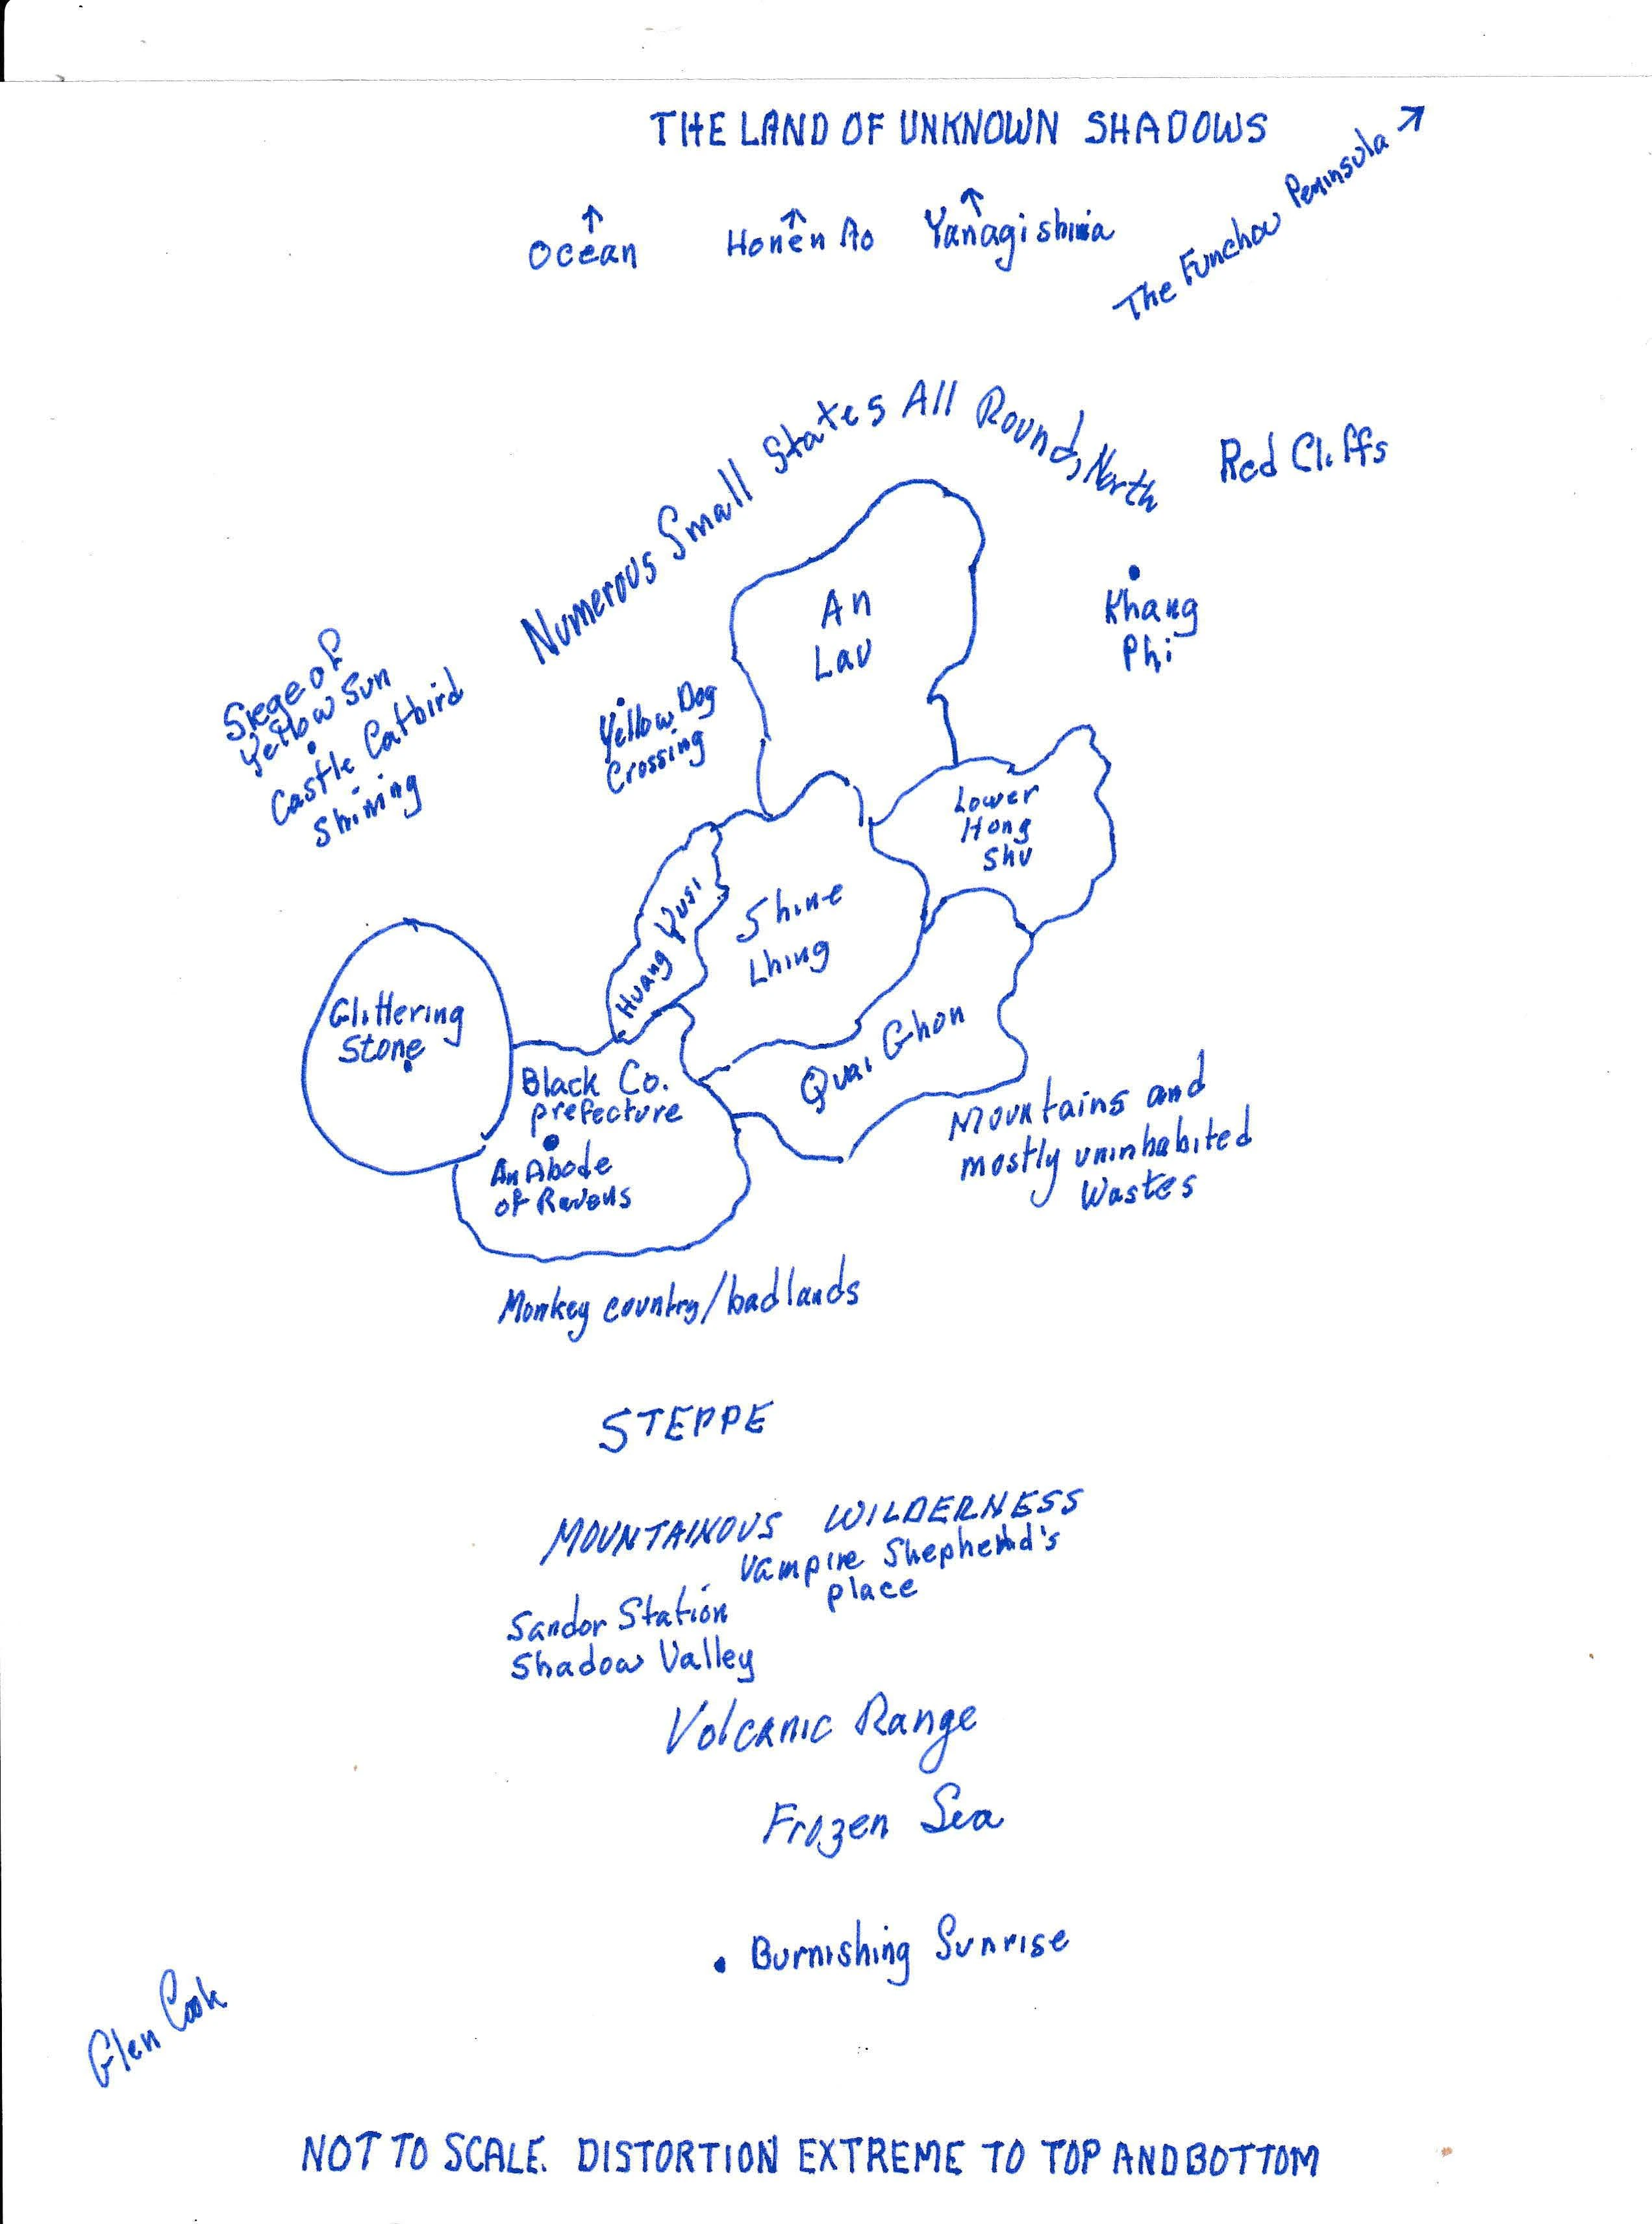 THE LAND OF UNKNOWN SHADOWS
The Funchou Peninsula →
↑ ↑ ↑
Ocean Honen Ao Yanagishima
Numerous Small States All Round, North
Red Cliffs
An
Lau
Khang
Phi
Siege of
Yellow Sun
Castle Catbird
Shining
Yellow Dog
Crossing
Lower
Hong
Shu
Shine
Lhing
Huang
Glittering
Stone
Quai Ghon
Black Co.
prefecture
An Abode
of Ravens
Mountains and
mostly uninhabited
Wastes
Monkey country/badlands
STEPPE
MOUNTAINOUS WILDERNESS
Vampire Shepherd's
place
Sandor Station
Shadow Valley
Volcanic Range
Frozen Sea
Burnishing Sunrise
Glen Cook
NOT TO SCALE. DISTORTION EXTREME TO TOP AND BOTTOM